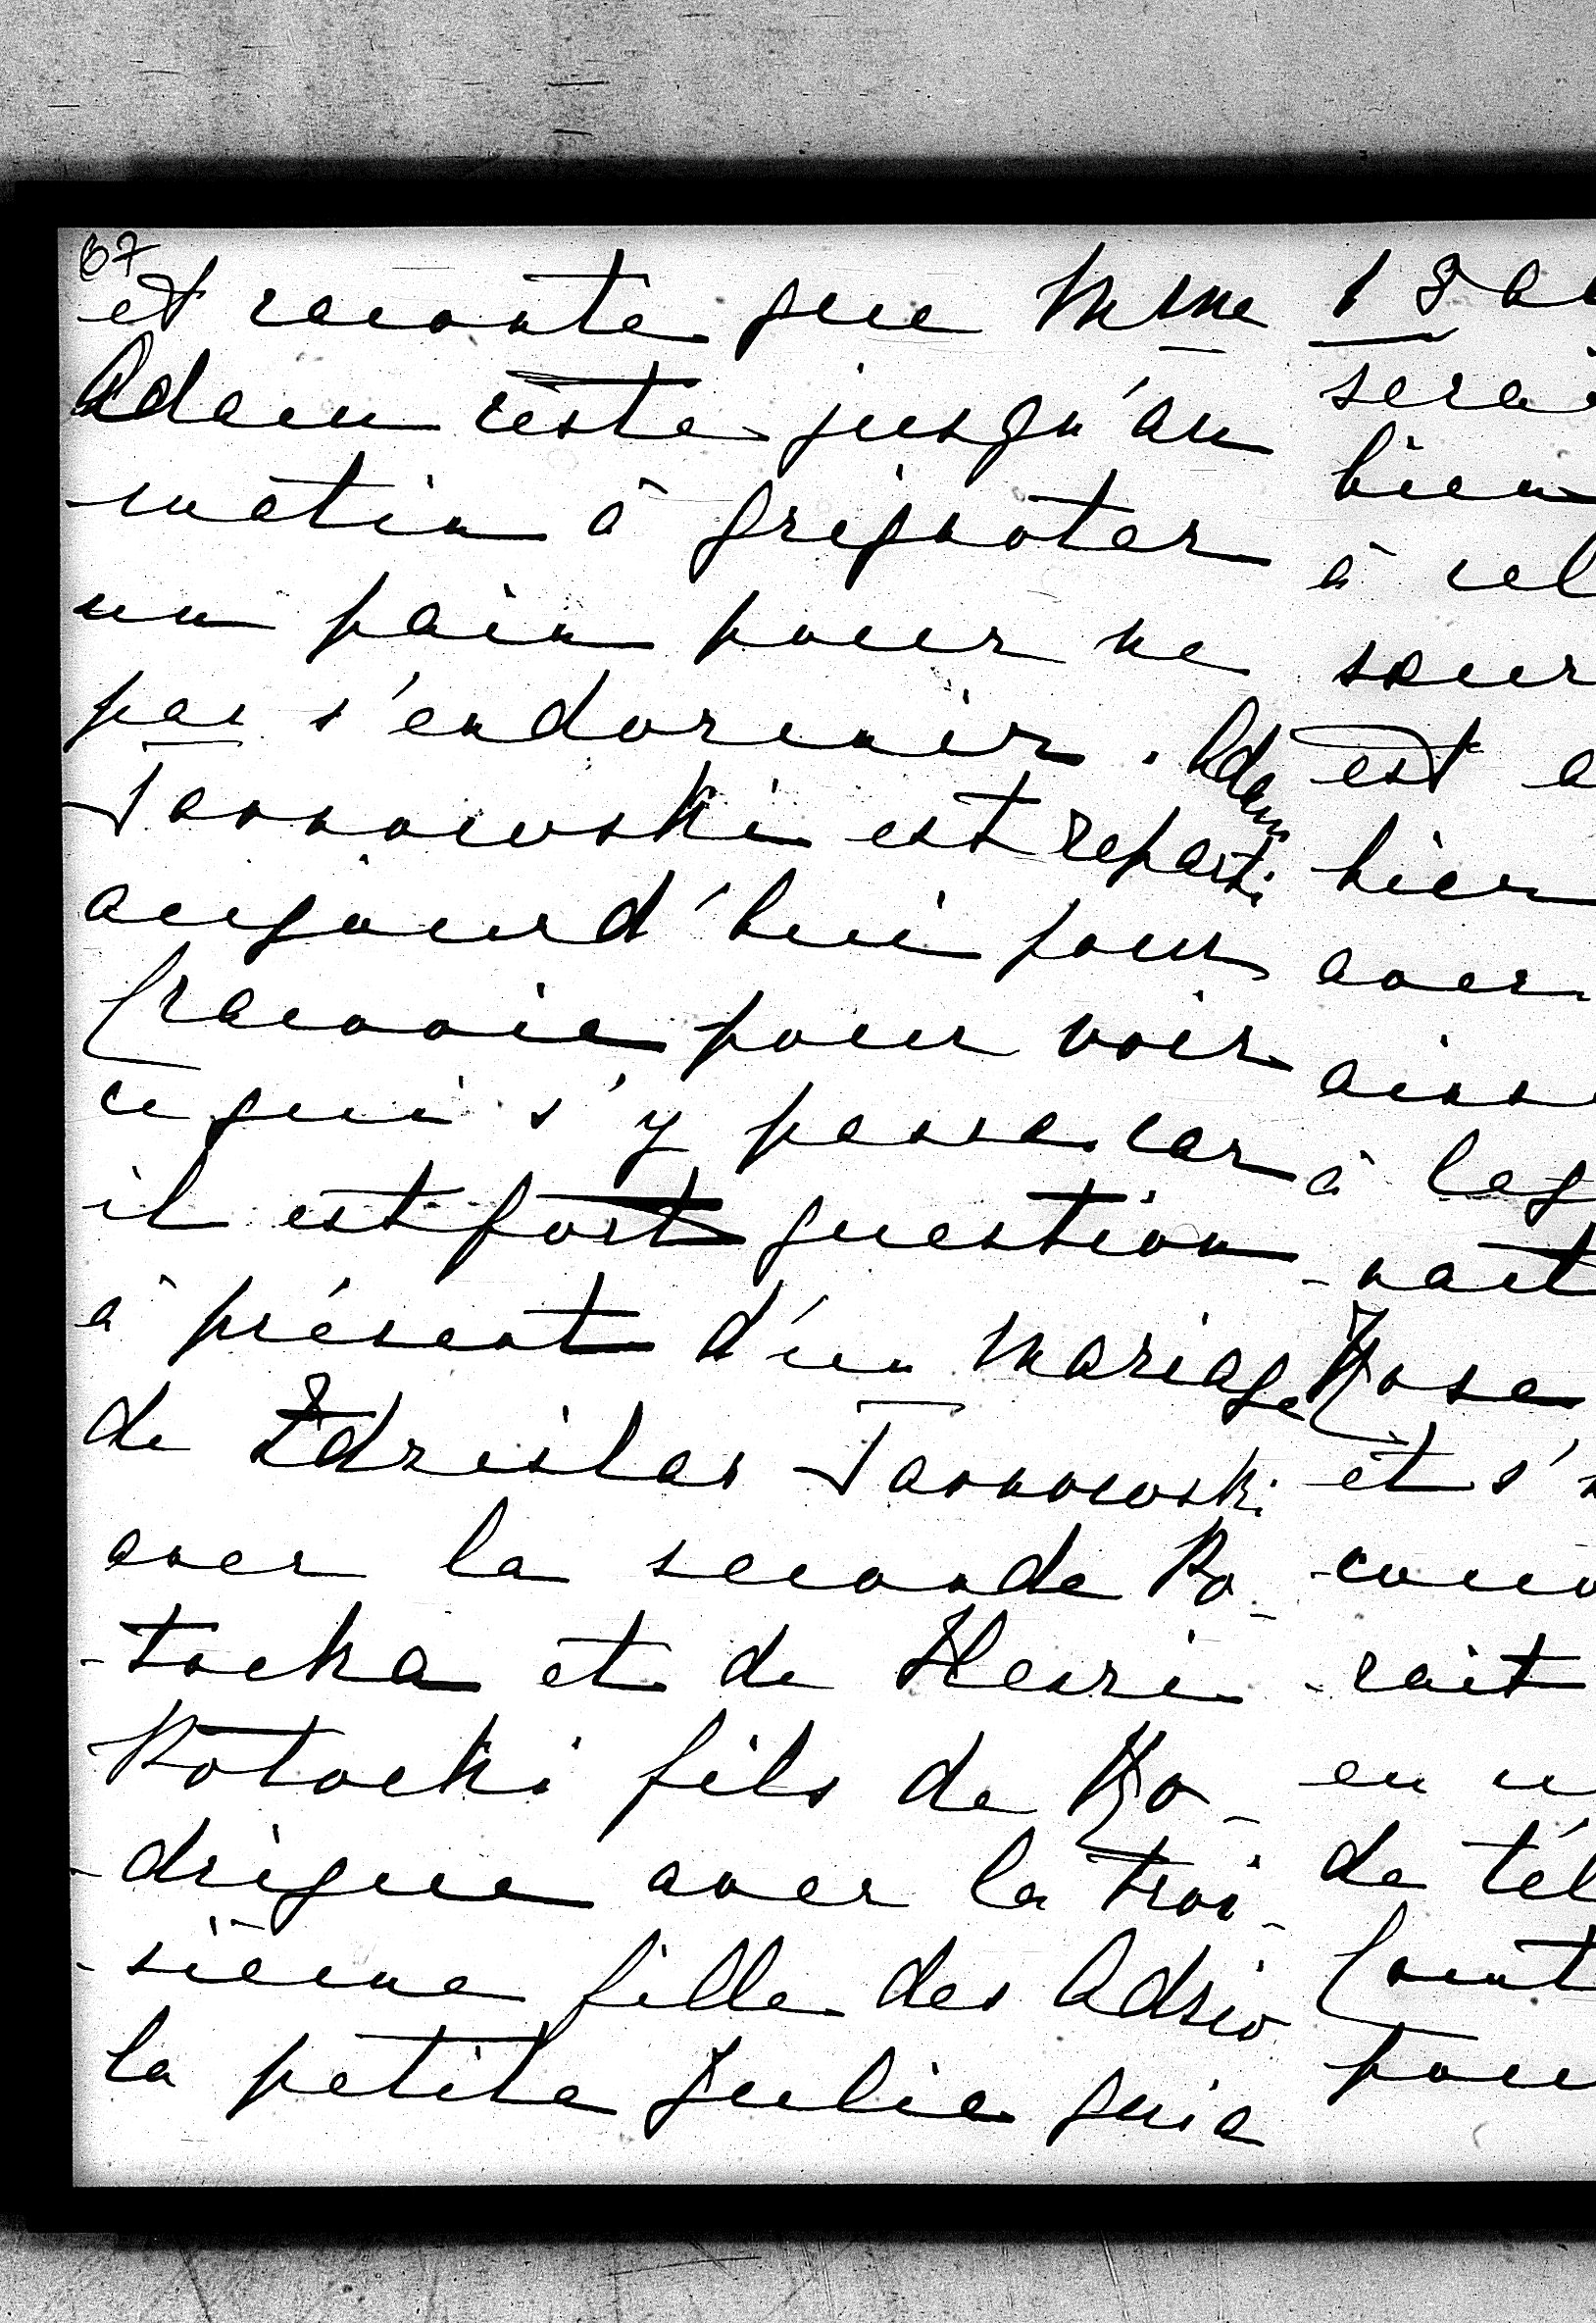 67
et raconte que Mme
Adam reste jusqu'au
matin à grignoter
un pain pour ne
pas s'endormir. Adam
Tarnowski est reparti
aujourd'hui pour
Cracovie pour voir
ce qui s'y passe car
il est fort question
à présent d'un mariage
de Zdzislas Tarnowski
avec la seconde Po-
-tocka et de Henri
Potocki fils de Ro-
-drigue avec la troi-
-sième fille des Adzio
la petite Julie qui a
18
serai
bien
à cel
soeur
est a
hier
avec
ains
à leg
-nait
Rose
et s'
-couv
-rait
en u
de tél
Comt
pou